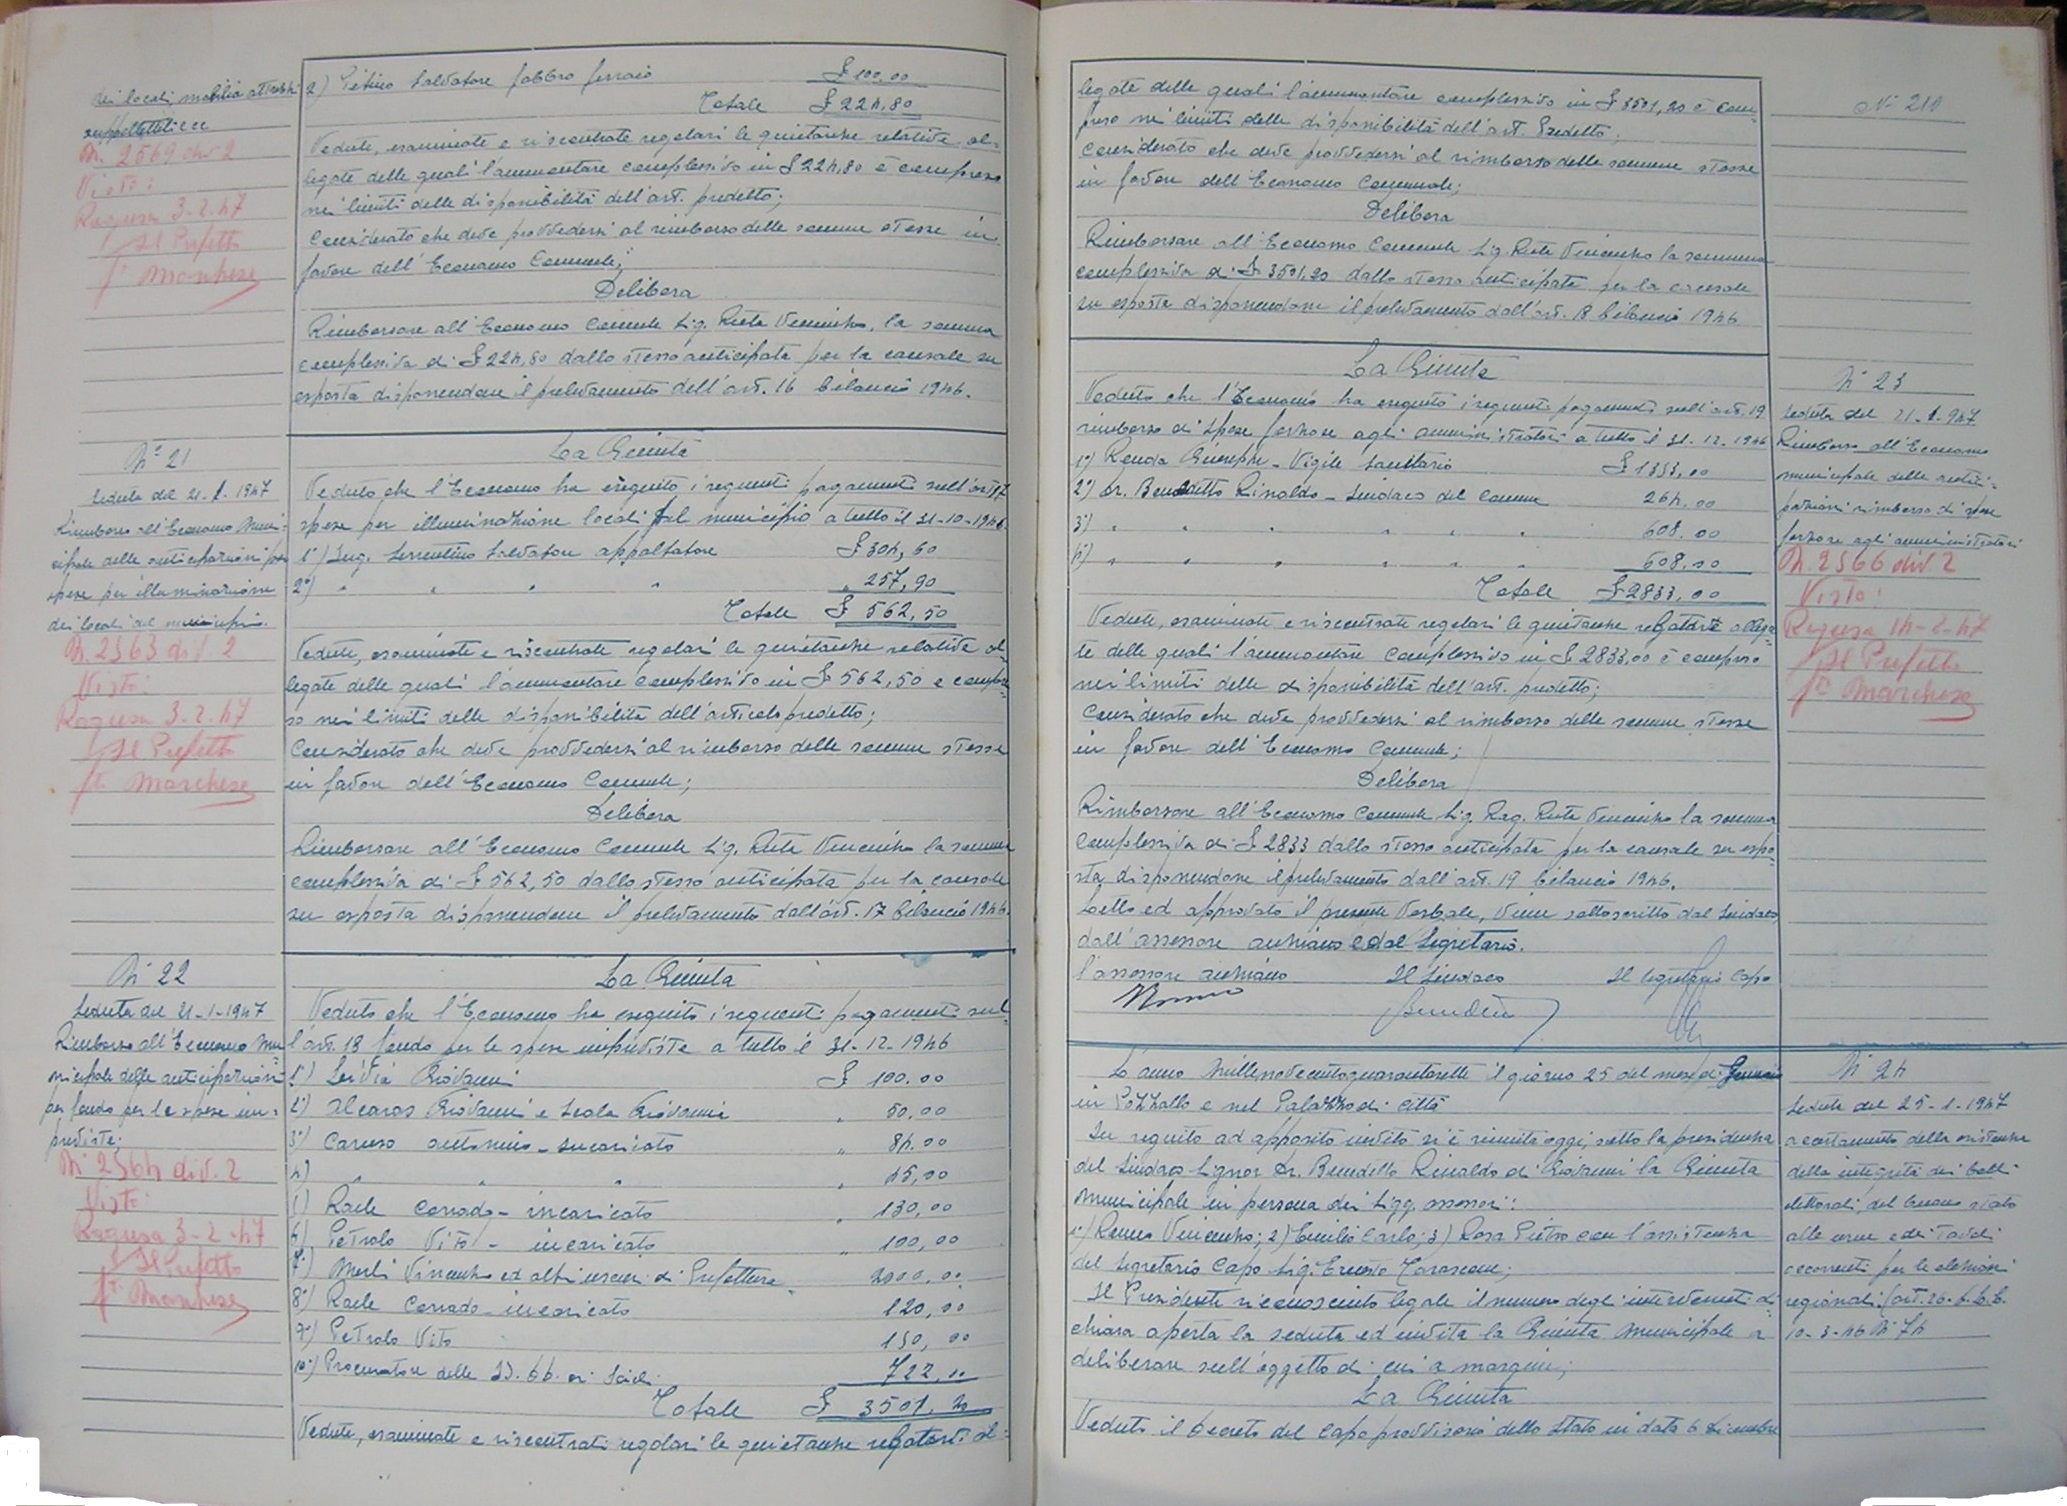 dei locali, mobilia attrezzi
suppellettili ecc
N. 2569 div 2
Visto:
Ragusa 3-2-47
Il Prefetto
fto Marchese
2) Salvatore fabbro ferraio £ 100,00
Totale £ 224,80
Vedute, esaminate e riscontrate regolari le quietanze relative al-
legate delle quali l'ammontare complessivo in £ 224,80 è compreso
nei limiti delle disponibilità dell'art. predetto;
Considerato che deve provvedersi al rimborso delle somme stesse in
favore dell'Economo Comunale;
Delibera
Rimborsare all'Economo Comunale Sig. Ruta Vincenzo, la somma
complessiva di £ 224,80 dallo stesso anticipata per la causale su
esposta disponendone il prelevamento dell'art. 16 bilancio 1946.
N° 21
Seduta del 21-1-1947
Rimborso all'Economo Muni-
cipale delle anticipazioni per
spese per illuminazione
dei locali del municipio.
N. 2363 div. 2
Visto:
Ragusa 3-2-47
Il Prefetto
fto Marchese
La Giunta
Veduto che l'Economo ha eseguito i seguenti pagamenti sull'art. 17
spese per illuminazione locali del municipio a tutto il 31-10-1946
1°) Ing. Sorrentino Salvatore appaltatore £ 304,60
2°) " " " " " 257,90
Totale £ 562,50
Vedute, esaminate e riscontrate regolari le quietanze relative al-
legate delle quali l'ammontare complessivo in £ 562,50 e compre-
so nei limiti delle disponibilità dell'articolo predetto;
Considerato che deve provvedersi al rimborso delle somme stesse
in favore dell'Economo Comunale;
Delibera
Rimborsare all'Economo Comunale Sig. Ruta Vincenzo la somma
complessiva di £ 562,50 dallo stesso anticipata per la causale
su esposta disponendone il prelevamento dall'art. 17 bilancio 1946.
N° 22
Seduta del 21-1-1947
Rimborso all'Economo Mu-
nicipale delle anticipazioni
per fondo per le spese im-
previste.
N° 2364 div. 2
Visto:
Ragusa 3-2-47
Il Prefetto
fto Marchese
La Giunta
Veduto che l'Economo ha eseguito i seguenti pagamenti sul-
l'art. 18 fondo per le spese impreviste a tutto il 31-12-1946
1°) Giovanni £ 100.00
2°) Giovanni e Scala Giovanni " 50,00
3°) Caruso Antonino - incaricato " 84.00
4) " " " " 45,00
5) Raele Corrado - incaricato " 130,00
6) Petralo Vito - incaricato " 100,00
7°) Merli Vincenzo ed altri uscieri di Prefettura 2000,00
8°) Raele Corrado - incaricato 120,00
9°) Petralo Vito 150,00
10°) Procuratore delle II. di Scicli 722,
Totale £ 3501,20
Vedute, esaminate e riscontrati regolari le quietanze al-
N° 210
legate delle quali l'ammontare complessivo in £ 3501,20 è com-
preso nei limiti delle disponibilità dell'art. predetto;
Considerato che deve provvedersi al rimborso delle somme stesse
in favore dell'Economo Comunale;
Delibera
Rimborsare all'Economo Comunale Sig. Ruta Vincenzo la somma
complessiva di £ 3501,20 dallo stesso anticipata per la causale
su esposta disponendone il prelevamento dall'art. 18 bilancio 1946
La Giunta
Veduto che l'Economo ha eseguito i seguenti pagamenti sull'art. 19
rimborso di spese forzose agli amministratori a tutto il 31-12-1946
1°) Renda Giuseppe - Vigile Sanitario £ 1353,00
2°) Dr. Benedetto Rinaldo - Sindaco del Comune 264,00
3°) " " " " " 608,00
4°) " " " " " 608,00
Totale £ 2833,00
Vedute, esaminate e riscontrate regolari le quietanze allega-
te delle quali l'ammontare complessivo in £ 2833,00 è compreso
nei limiti delle disponibilità dell'art. predetto;
Considerato che deve provvedersi al rimborso delle somme stesse
in favore dell'Economo Comunale;
Delibera
Rimborsare all'Economo Comunale Sig. Rag. Ruta Vincenzo la somma
complessiva di £ 2833 dallo stesso anticipata per la causale su espo-
sta disponendone il prelevamento dall'art. 19 bilancio 1946.
Letto ed approvato il presente Verbale, viene sottoscritto dal Sindaco
dall'assessore anziano e dal Segretario.
L'assessore anziano Il Sindaco Il Segretario Capo
N° 23
Seduta del 21-1-947
Rimborso all'Economo
municipale delle antici-
pazioni rimborso di spese
forzose agli amministratori
N. 2366 div 2
Visto:
Ragusa 14-2-47
Il Prefetto
fto Marchese
L'anno millenovecentoquarantasette il giorno 25 del mese di Gennaio
in Pozzallo e nel Palazzo di Città
In seguito ad apposito invito si è riunita oggi, sotto la presidenza
del Sindaco Signor Dr. Benedetto Rinaldo di Giovanni la Giunta
Municipale in persona dei Sigg. assessori:
1°) Vincenzo; 2) Emilio Carlo; 3) Rosa Pietro con l'assistenza
del Segretario Capo Sig. Ernesto Tarascone;
Il Presidente riconosciuto legale il numero degl'intervenuti di-
chiara aperta la seduta ed invita la Giunta Municipale a
deliberare sull'oggetto di cui a margine;
La Giunta
Veduto il Decreto del Capo provvisorio dello Stato in data 6 Dicembre
N° 24
Seduta del 25-1-1947
accertamento della esistenza
della integrità dei bolli
elettorali, del buono stato
alle urne e dei tavoli
occorrenti per le elezioni
regionali. (art. 20
10-3-46 N° 74